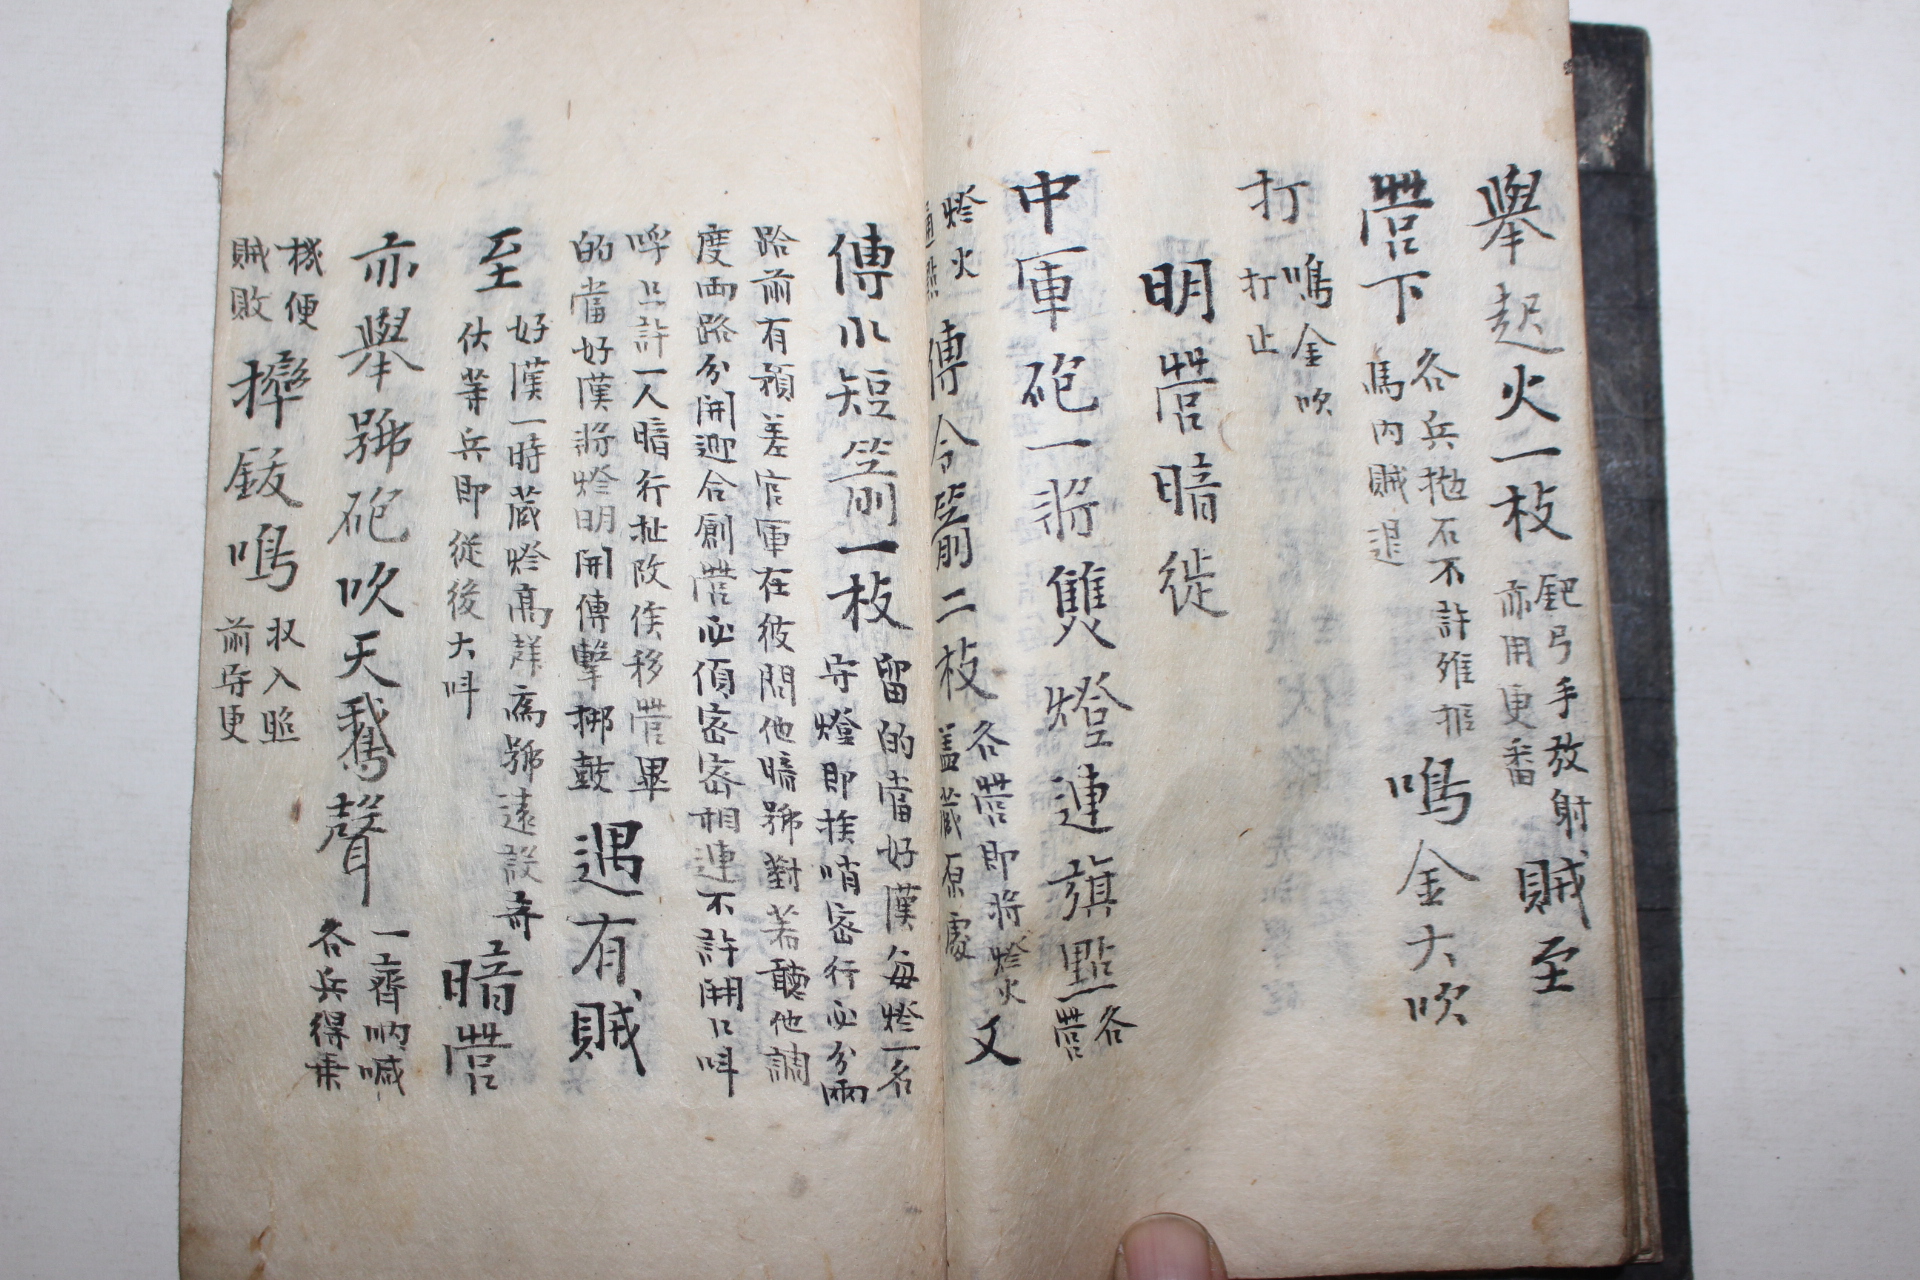 舉起火一枝 鈀弓手放射 亦用更番 賊至
營下 各兵拋石不許雖 馬內賊退 鳴金大吹
打 鳴金吹打止
明營暗徙
中軍砲一將雙燈連旗點 各營
燈火通熄 傳令箭二枝 各營卽將燈火盖藏原處 又
傳小短箭一枝 留的當好漢每燈一名守燈卽挨哨密行必分兩
路前有預差官軍在彼問他暗號對若聽他調
度两路分開迎合創營必須密密相連不許開口呌
呼只許一人暗行扯改俟移營畢
的當好漢將燈明開傳擊挪鼓 遇有賊
至 好漢一時藏燈高群爲號遠設奇伏等兵卽從後大呌 暗營
亦舉號砲吹天鵞聲 一齊吶喊各兵得乘
機便賊敗 摔鈸鳴 收入照前守更